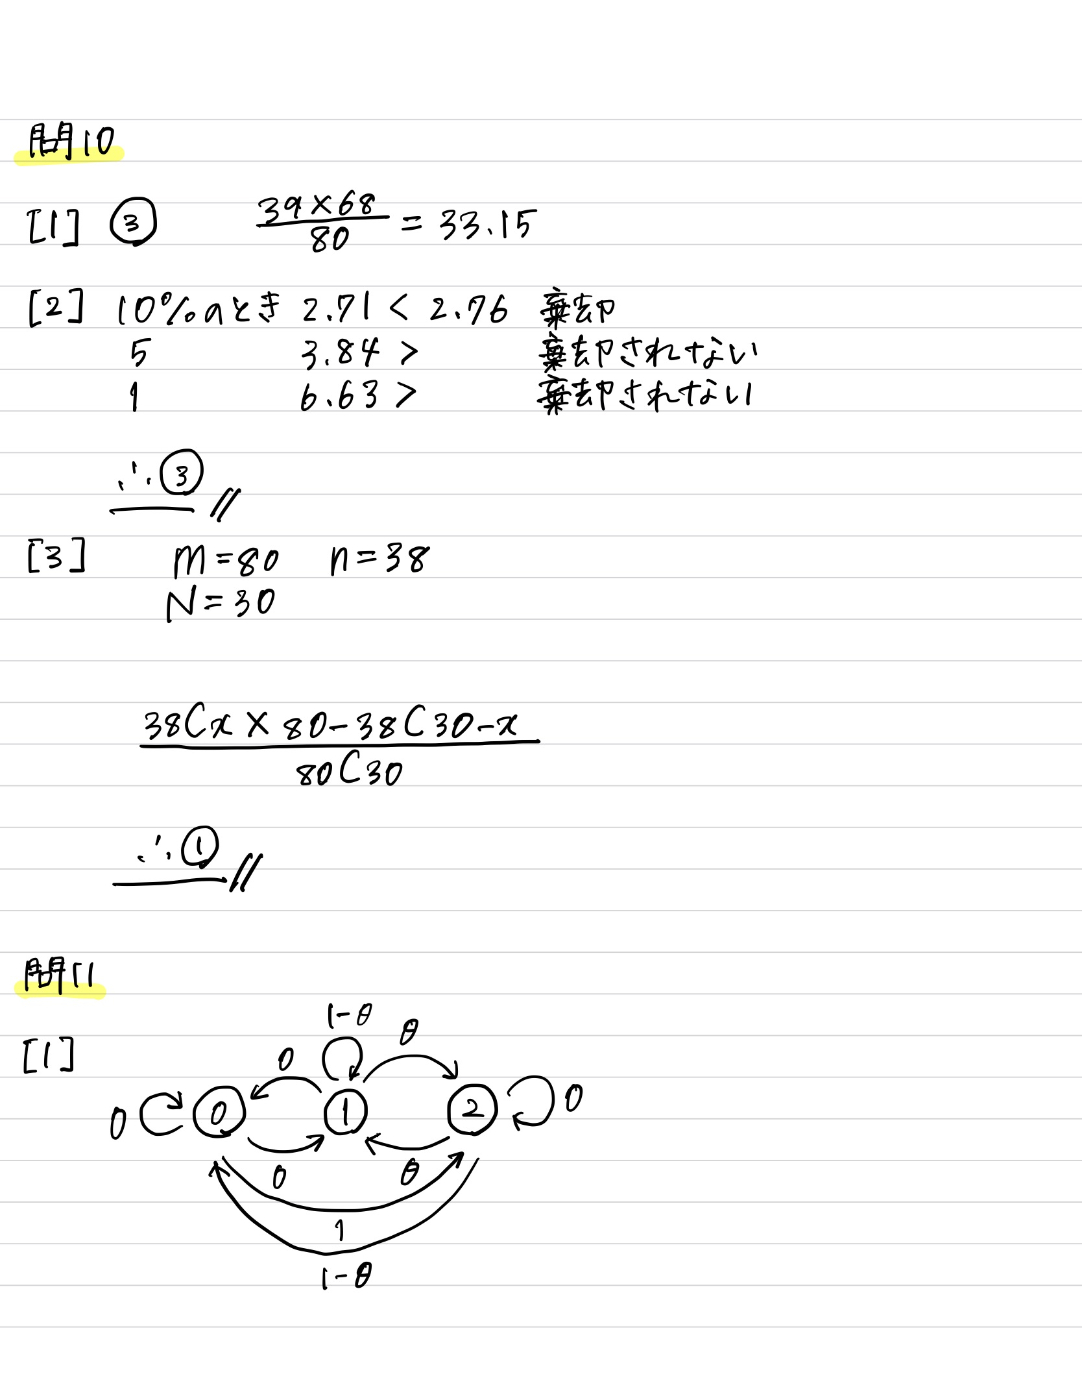 問10
[1] ③ 39×68/80 = 33.15
[2] 10%のとき 2.71 < 2.76 棄却
5 3.84 > 棄却されない
1 6.63 > 棄却されない
∴③//
[3] m=80 n=38
N=30
38Cx × 80-38C30-x
80C30
∴①//
問11
1-θ
[1] 0 θ
0 0 1 2 0
0 θ
1
1-θ